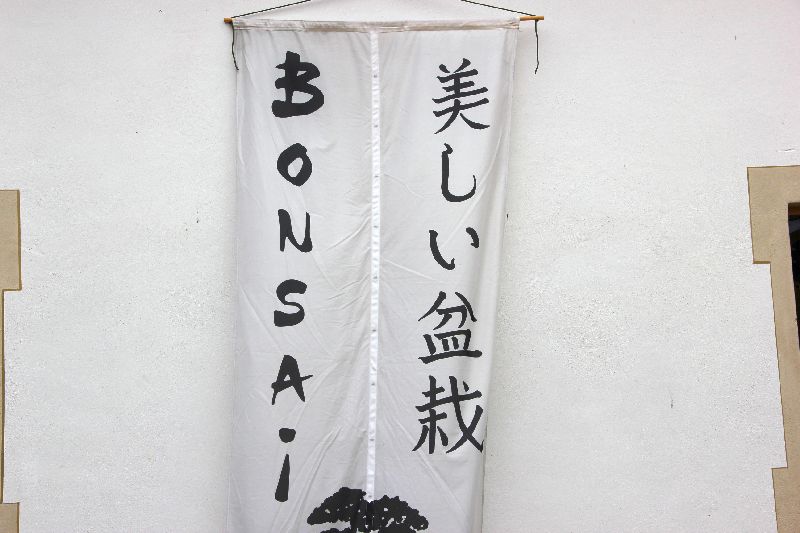 BONSAi
美しい盆栽